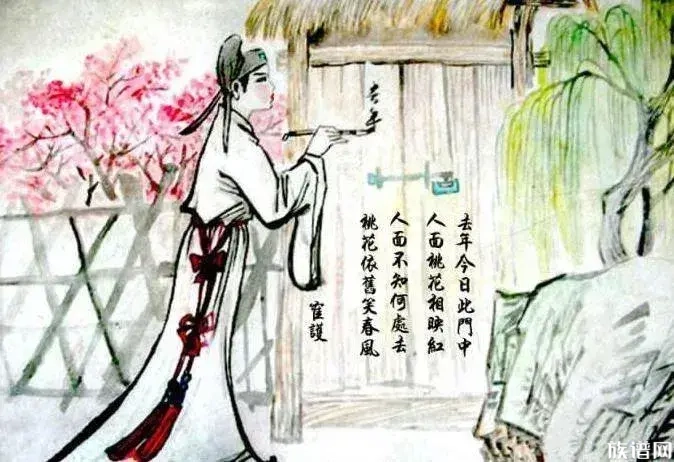 去年
去年今日此門中
人面桃花相映紅
人面不知何處去
桃花依舊笑春風
崔護
族谱网